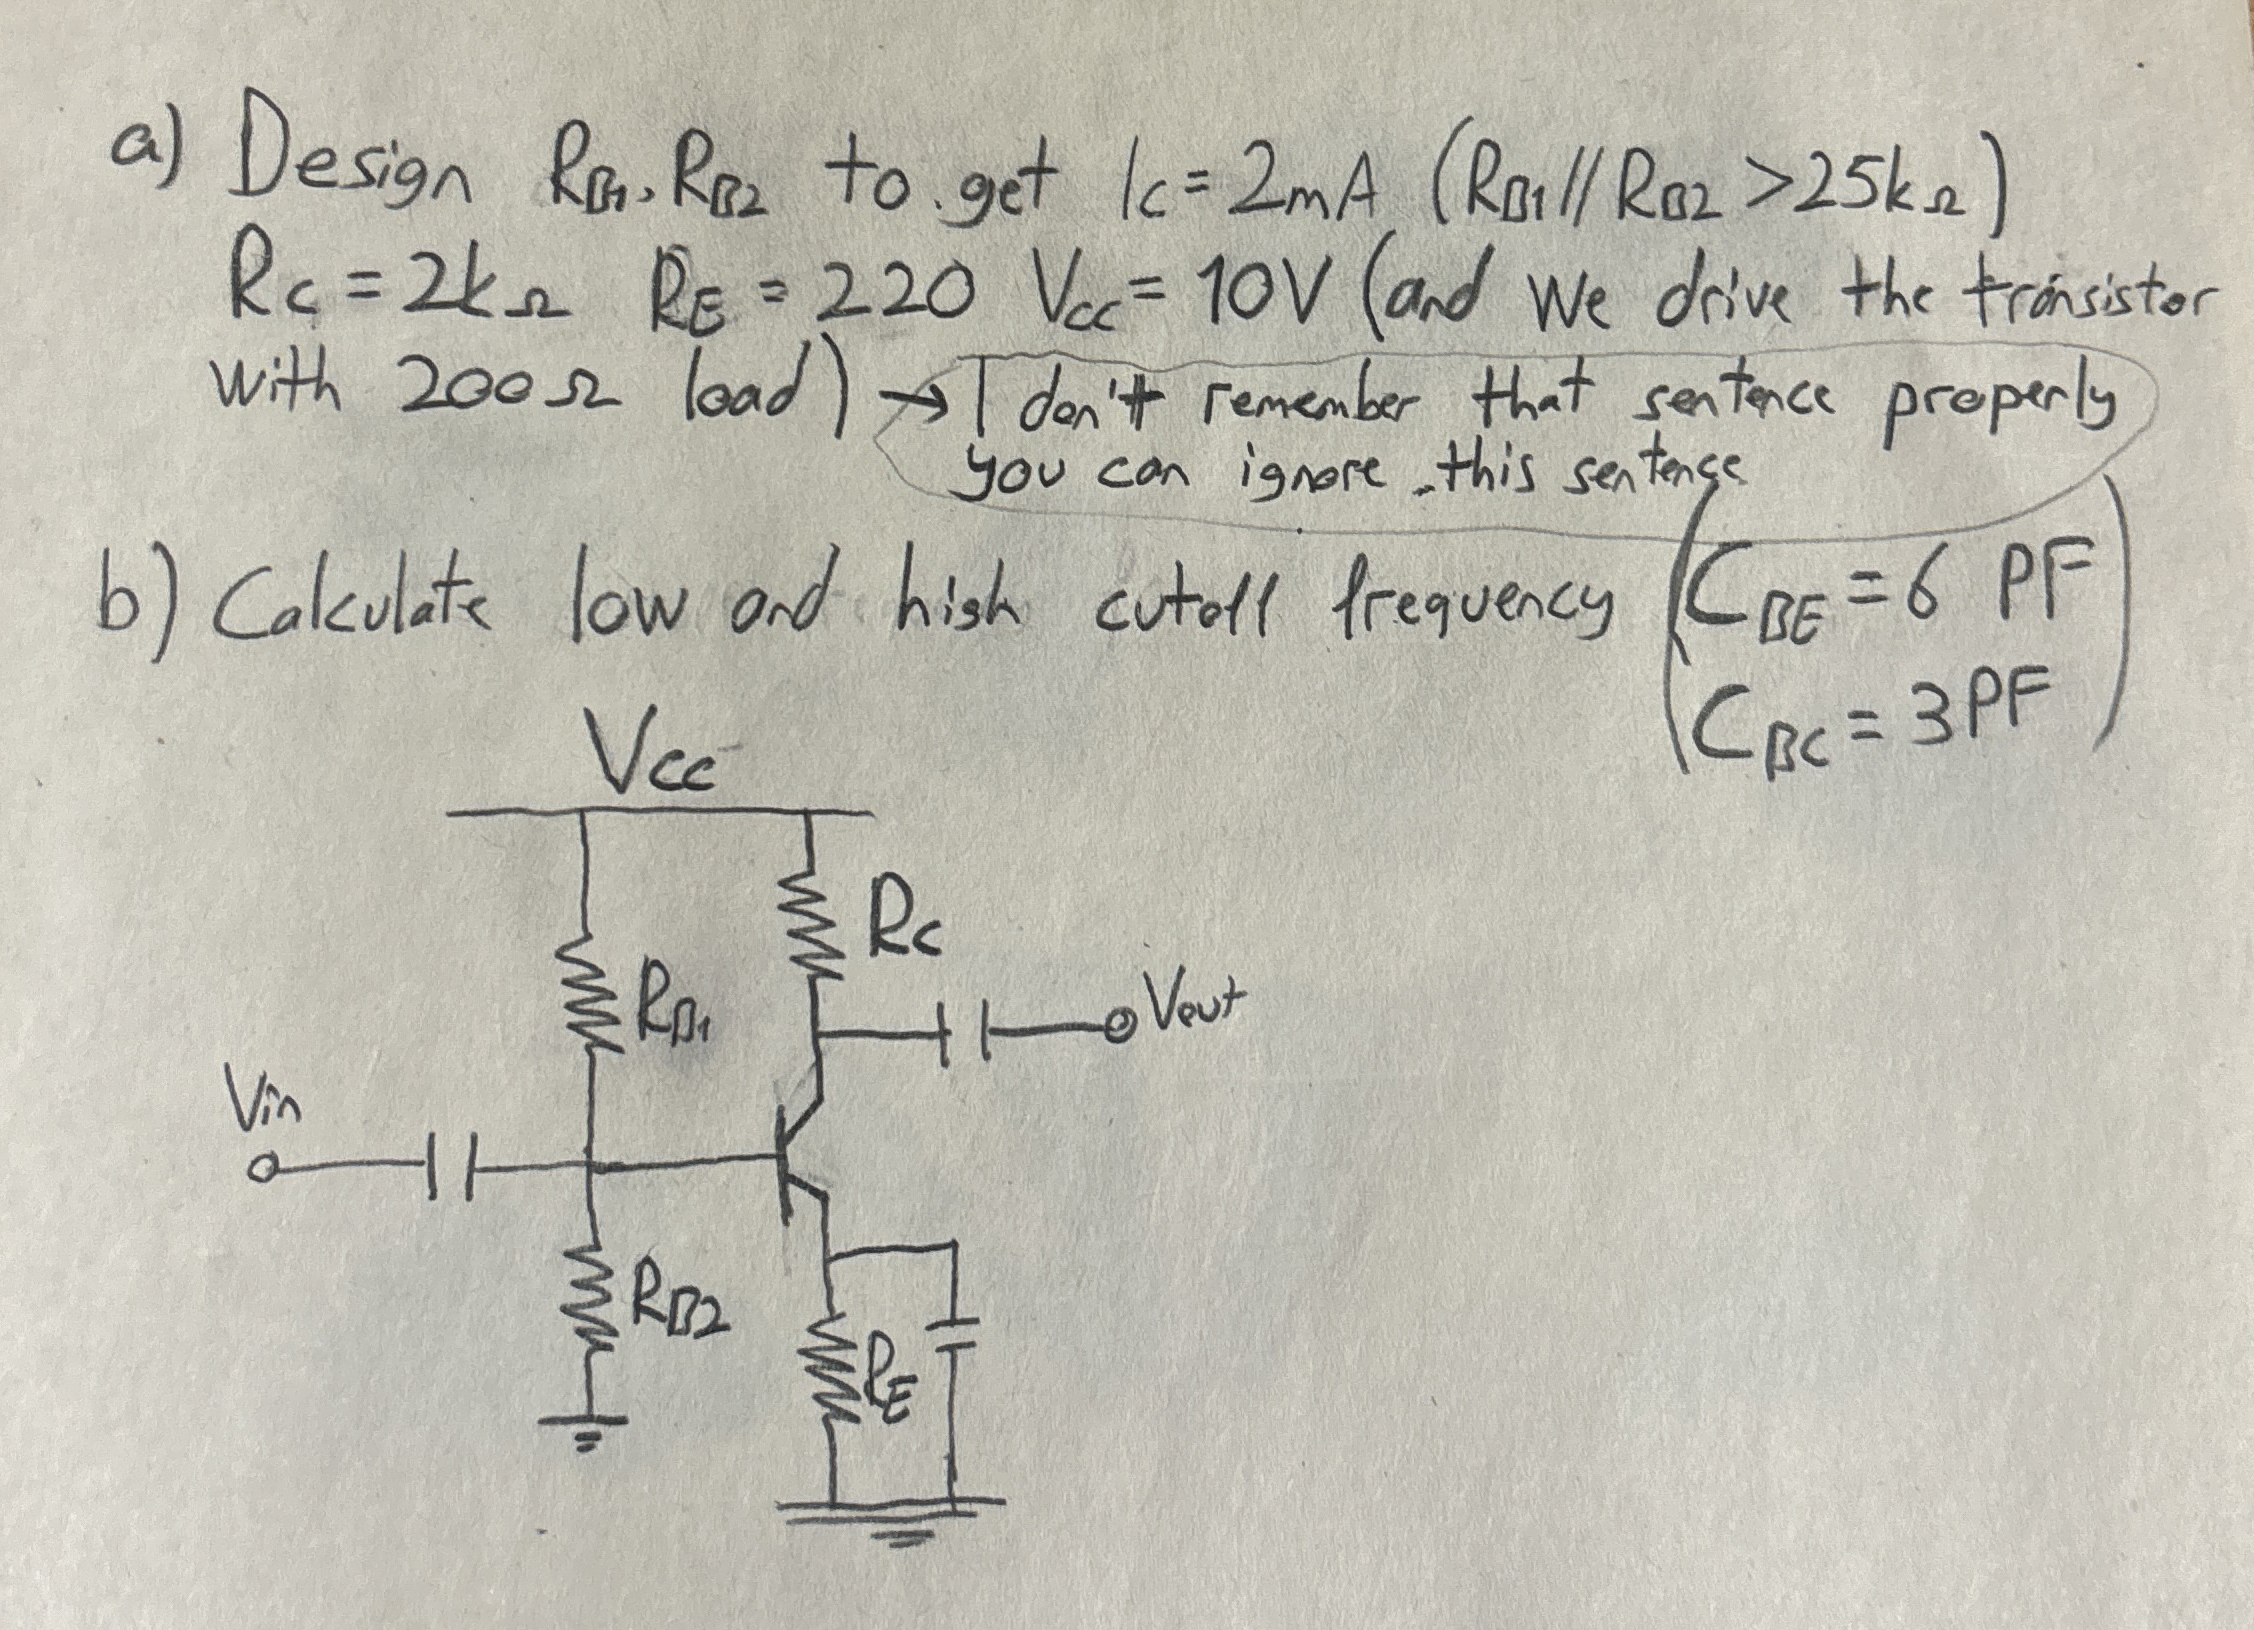 a) Design RB1, RB2 to get IC = 2mA (RB1 // RB2 > 25kΩ)
RC = 2kΩ RE = 220 VCC = 10V (and we drive the transistor
with 200Ω load) → I don't remember that sentence properly
you can ignore this sentence
b) Calculate low and high cutoff frequency (CBE = 6 PF
CBC = 3PF)
VCC
RC
RB1
Vout
Vin
RB2
RE